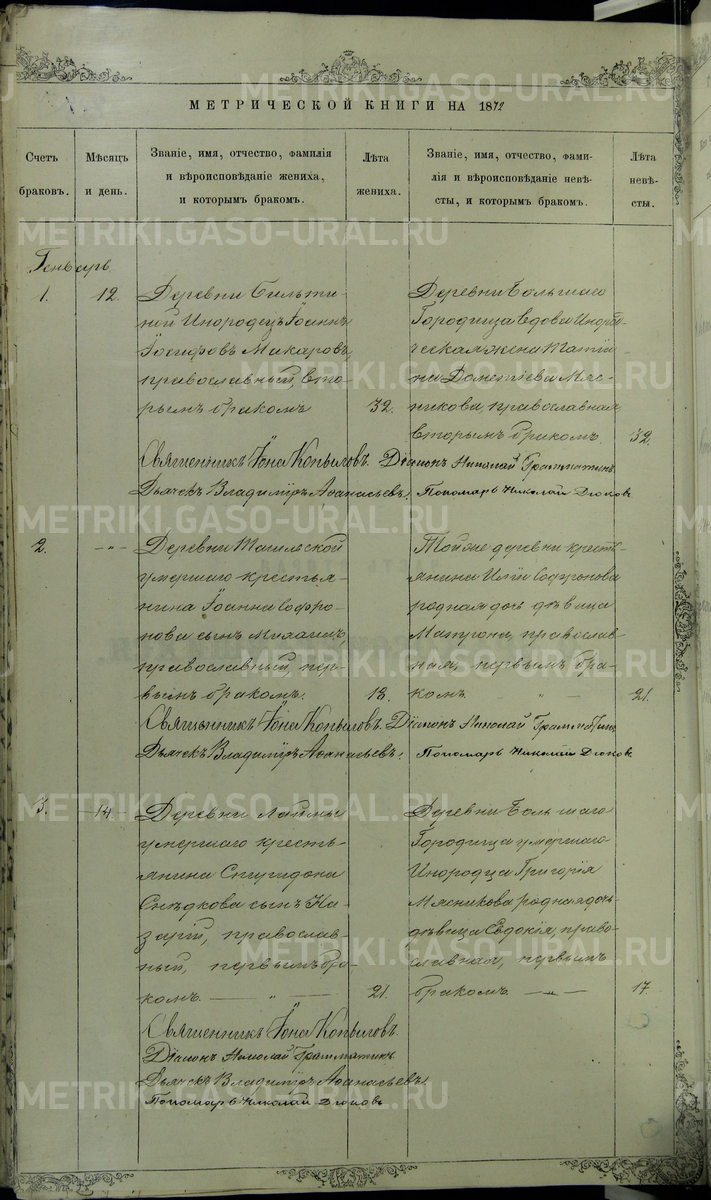 МЕТРИЧЕСКОЙ КНИГИ НА 1872
Счетъ браковъ.
Мѣсяцъ и день.
Званіе, имя, отчество, фамилія
и вѣроисповѣданіе жениха,
и которымъ бракомъ.
Лѣта жениха.
Званіе, имя, отчество, фами-
лія и вѣроисповѣданіе невѣ-
сты, и которымъ бракомъ.
Лѣта невѣ-
сты.
Генварь
1. 12.
Деревни
Инородецъ Іоаннъ
Іосифовъ Макаровъ,
православный, вто-
рымъ бракомъ 32.
Деревни Большаго
Городища вдова Инород-
ческая жена Татія-
на Мяс-
никова, православная,
вторымъ бракомъ. 32.
Священникъ Іона Копыловъ. Діаконъ Николай Грамматинъ
Дьячекъ Владиміръ Аѳанасьевъ. Пономарь Николай Дюковъ
2. —"—
Деревни
умершаго крестья-
нина Іоанна Софро-
нова сынъ Михаилъ,
православный, пер-
вымъ бракомъ. 18.
Той же деревни кресть-
янина Иліи Софронова
родная дочь дѣвица
Матрона, православ-
ная, первымъ бра-
комъ. 21.
Священникъ Іона Копыловъ. Діаконъ Николай Грамматинъ
Дьячекъ Владиміръ Аѳанасьевъ. Пономарь Николай Дюковъ.
3. 14.
Деревни Лаймы
умершаго кресть-
янина Спиридона
Снѣдкова сынъ На-
зарій, православ-
ный, первымъ бра-
комъ. —"— 21.
Деревни Большаго
Городища умершаго
Инородца Григорія
Мясникова родная дочь
дѣвица Евдокія, право-
славная, первымъ
бракомъ. —"— 17.
Священникъ Іона Копыловъ.
Діаконъ Николай Грамматинъ
Дьячекъ Владиміръ Аѳанасьевъ.
Пономарь Николай Дюковъ
METRIKI.GASO-URAL.RU